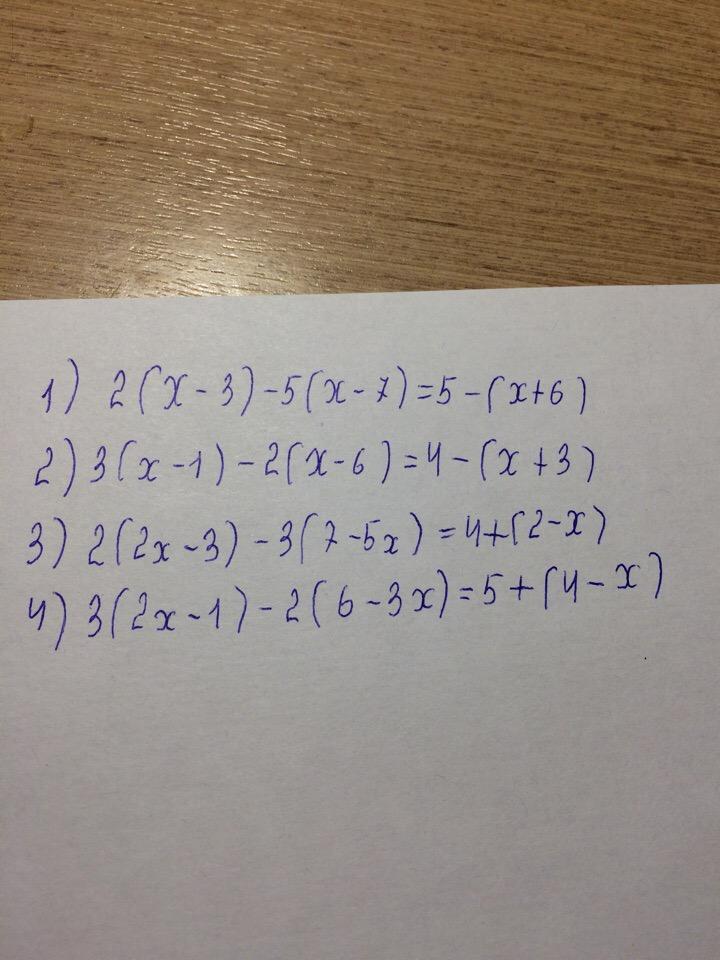 1) 2(x-3)-5(x-7)=5-(x+6)
2) 3(x-1)-2(x-6)=4-(x+3)
3) 2(2x-3)-3(7-5x)=4+(2-x)
4) 3(2x-1)-2(6-3x)=5+(4-x)